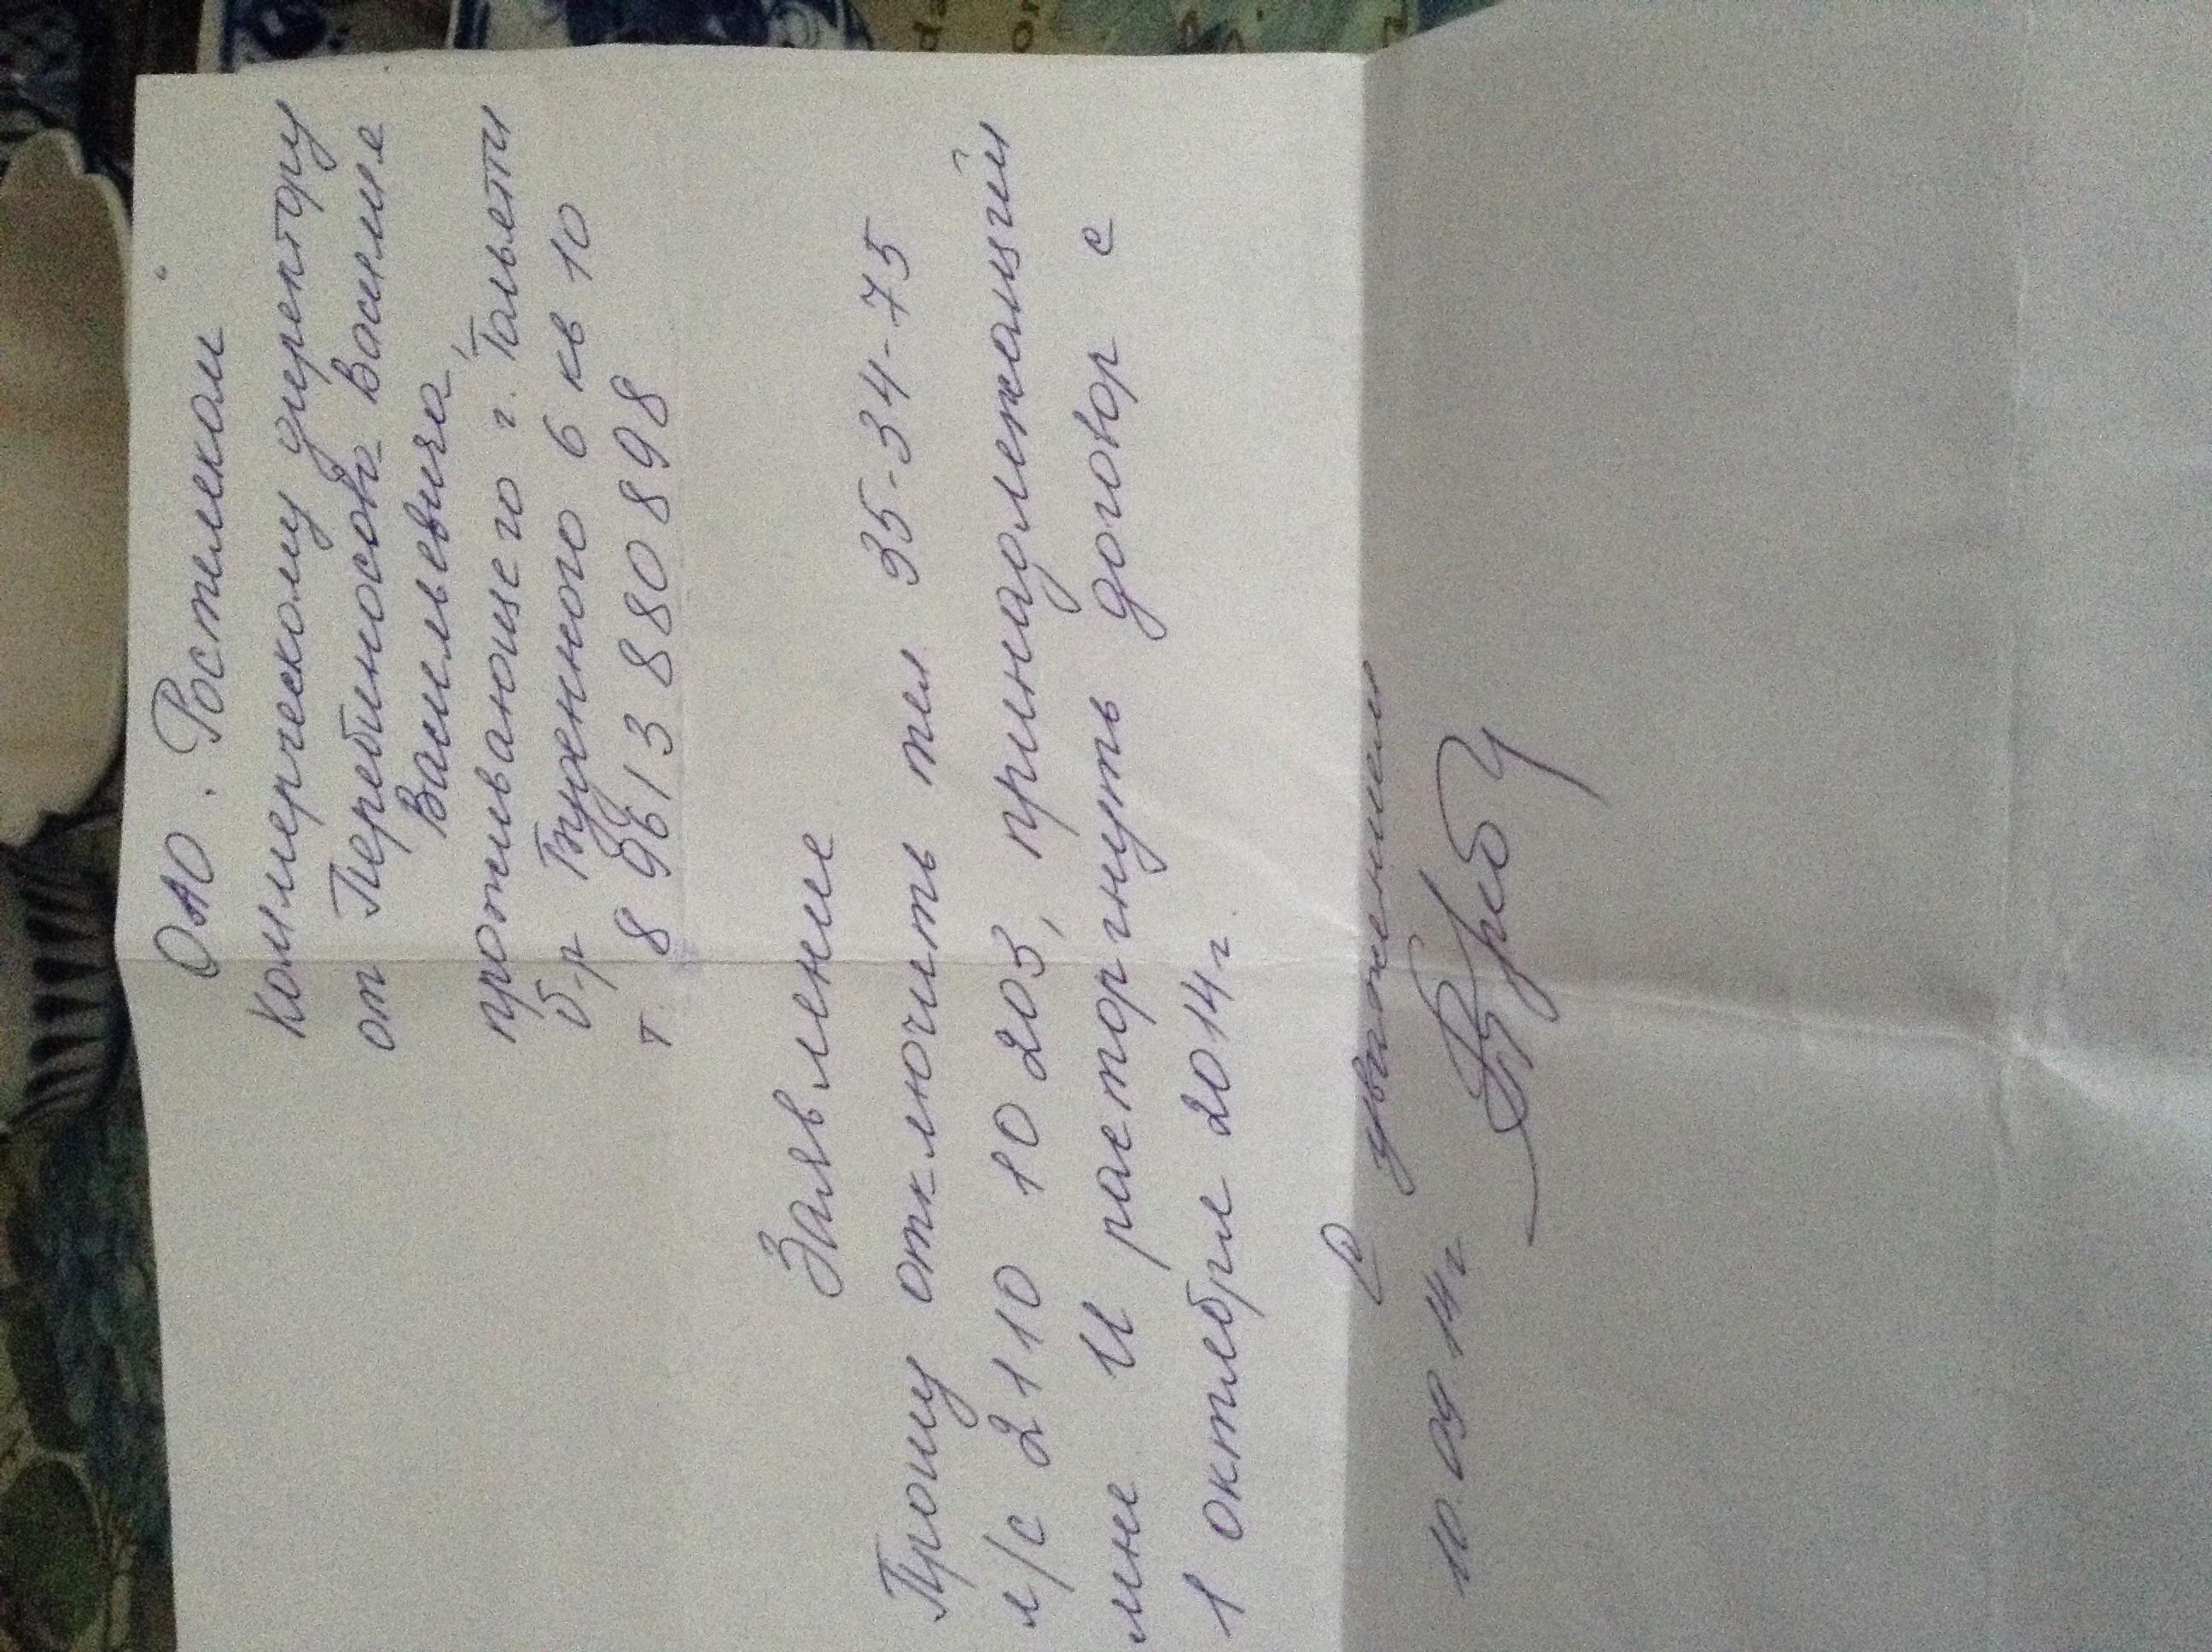 ОАО. Ростелеком
Коммерческому директору
от Перебиносова Василия
Васильевича
проживающего г. Тольятти
б-р Буденного 6 кв 10
т. 8 9613 880 898
Заявление
Прошу отключить тел 35-34-75
л/с 2110 10 203, принадлежащий
мне и расторгнуть договор с
1 октября 2014 г.
С уважением
10.09 14 г